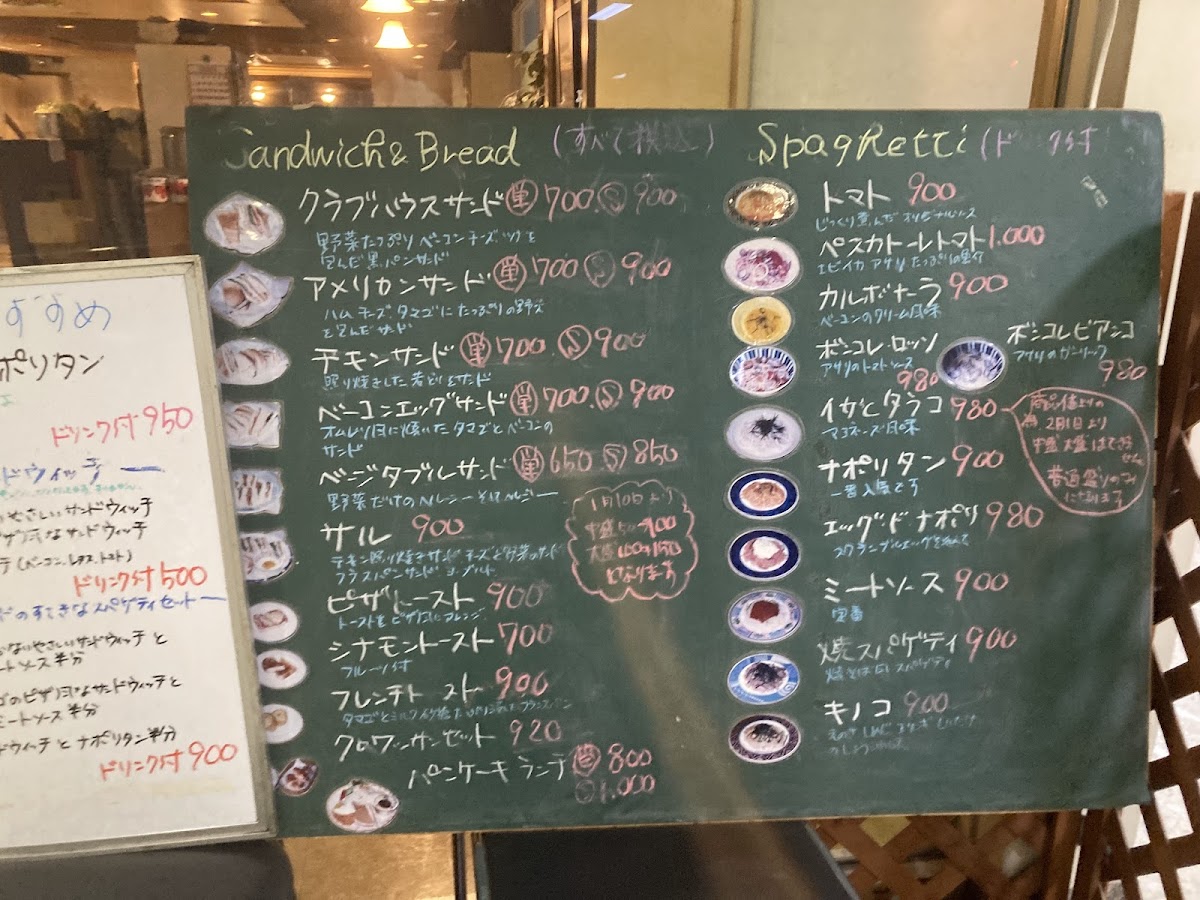 すすめ
ポリタン
ドリンク付 950
ドウィッチ
やさしいサンドウィッチ
ピザ風なサンドウィッチ
(ベーコン.レタス.トマト)
ドリンク付 500
のすてきなスパゲティセット
やさしいサンドウィッチ と
ートソース 半分
のピザ風なサンドウィッチと
ミートソース 半分
ドウィッチと ナポリタン半分
ドリンク付 900
Sandwich & Bread (すべて税込)
クラブハウスサンド 単 700. S 900
野菜たっぷり ベーコン チーズ ツナを
包んだ黒パンサンド
アメリカンサンド 単 700 S 900
ハム チーズ タマゴに たっぷりの野菜
を包んだ サンド
チキンサンド 単 700. S 900
照り焼きした若どりサンド
ベーコンエッグサンド 単 700. S 900
オムレツ風に焼いた タマゴと ベーコンの
サンド
ベジタブルサンド 単 650 S 850
野菜だけのヘルシー
サル 900
チキン照り焼きサンド チーズと野菜のサンド
フランスパンサンド ヨーグルト
1月10日より
中盛
大盛
となります
ピザトースト 900
トーストを ピザ風にアレンジ
シナモントースト 700
フルーツ付
フレンチトースト 900
タマゴとミルク フランスパン
クロワッサンセット 920
パンケーキ ランチ 800
1.000
Spaghetti (ド ク付
トマト 900
じっくり煮んだ オリジナルソース
ペスカトーレトマト 1.000
エビ イカ アサリ たっぷりの
カルボナーラ 900
ベーコンのクリーム風味
ボンゴレロッソ
アサリのトマトソース
980
ボンゴレビアンコ
アサリのガーリック
980
イカとタラコ 980
マヨネーズ風味
2月1日より
中盛 大盛はできま
せん
普通盛りのみ
になります
ナポリタン 900
一番人気です
エッグドナポリ 980
スクランブルエッグを
ミートソース 900
定番
焼スパゲティ 900
焼そば風 スパゲティ
キノコ 900